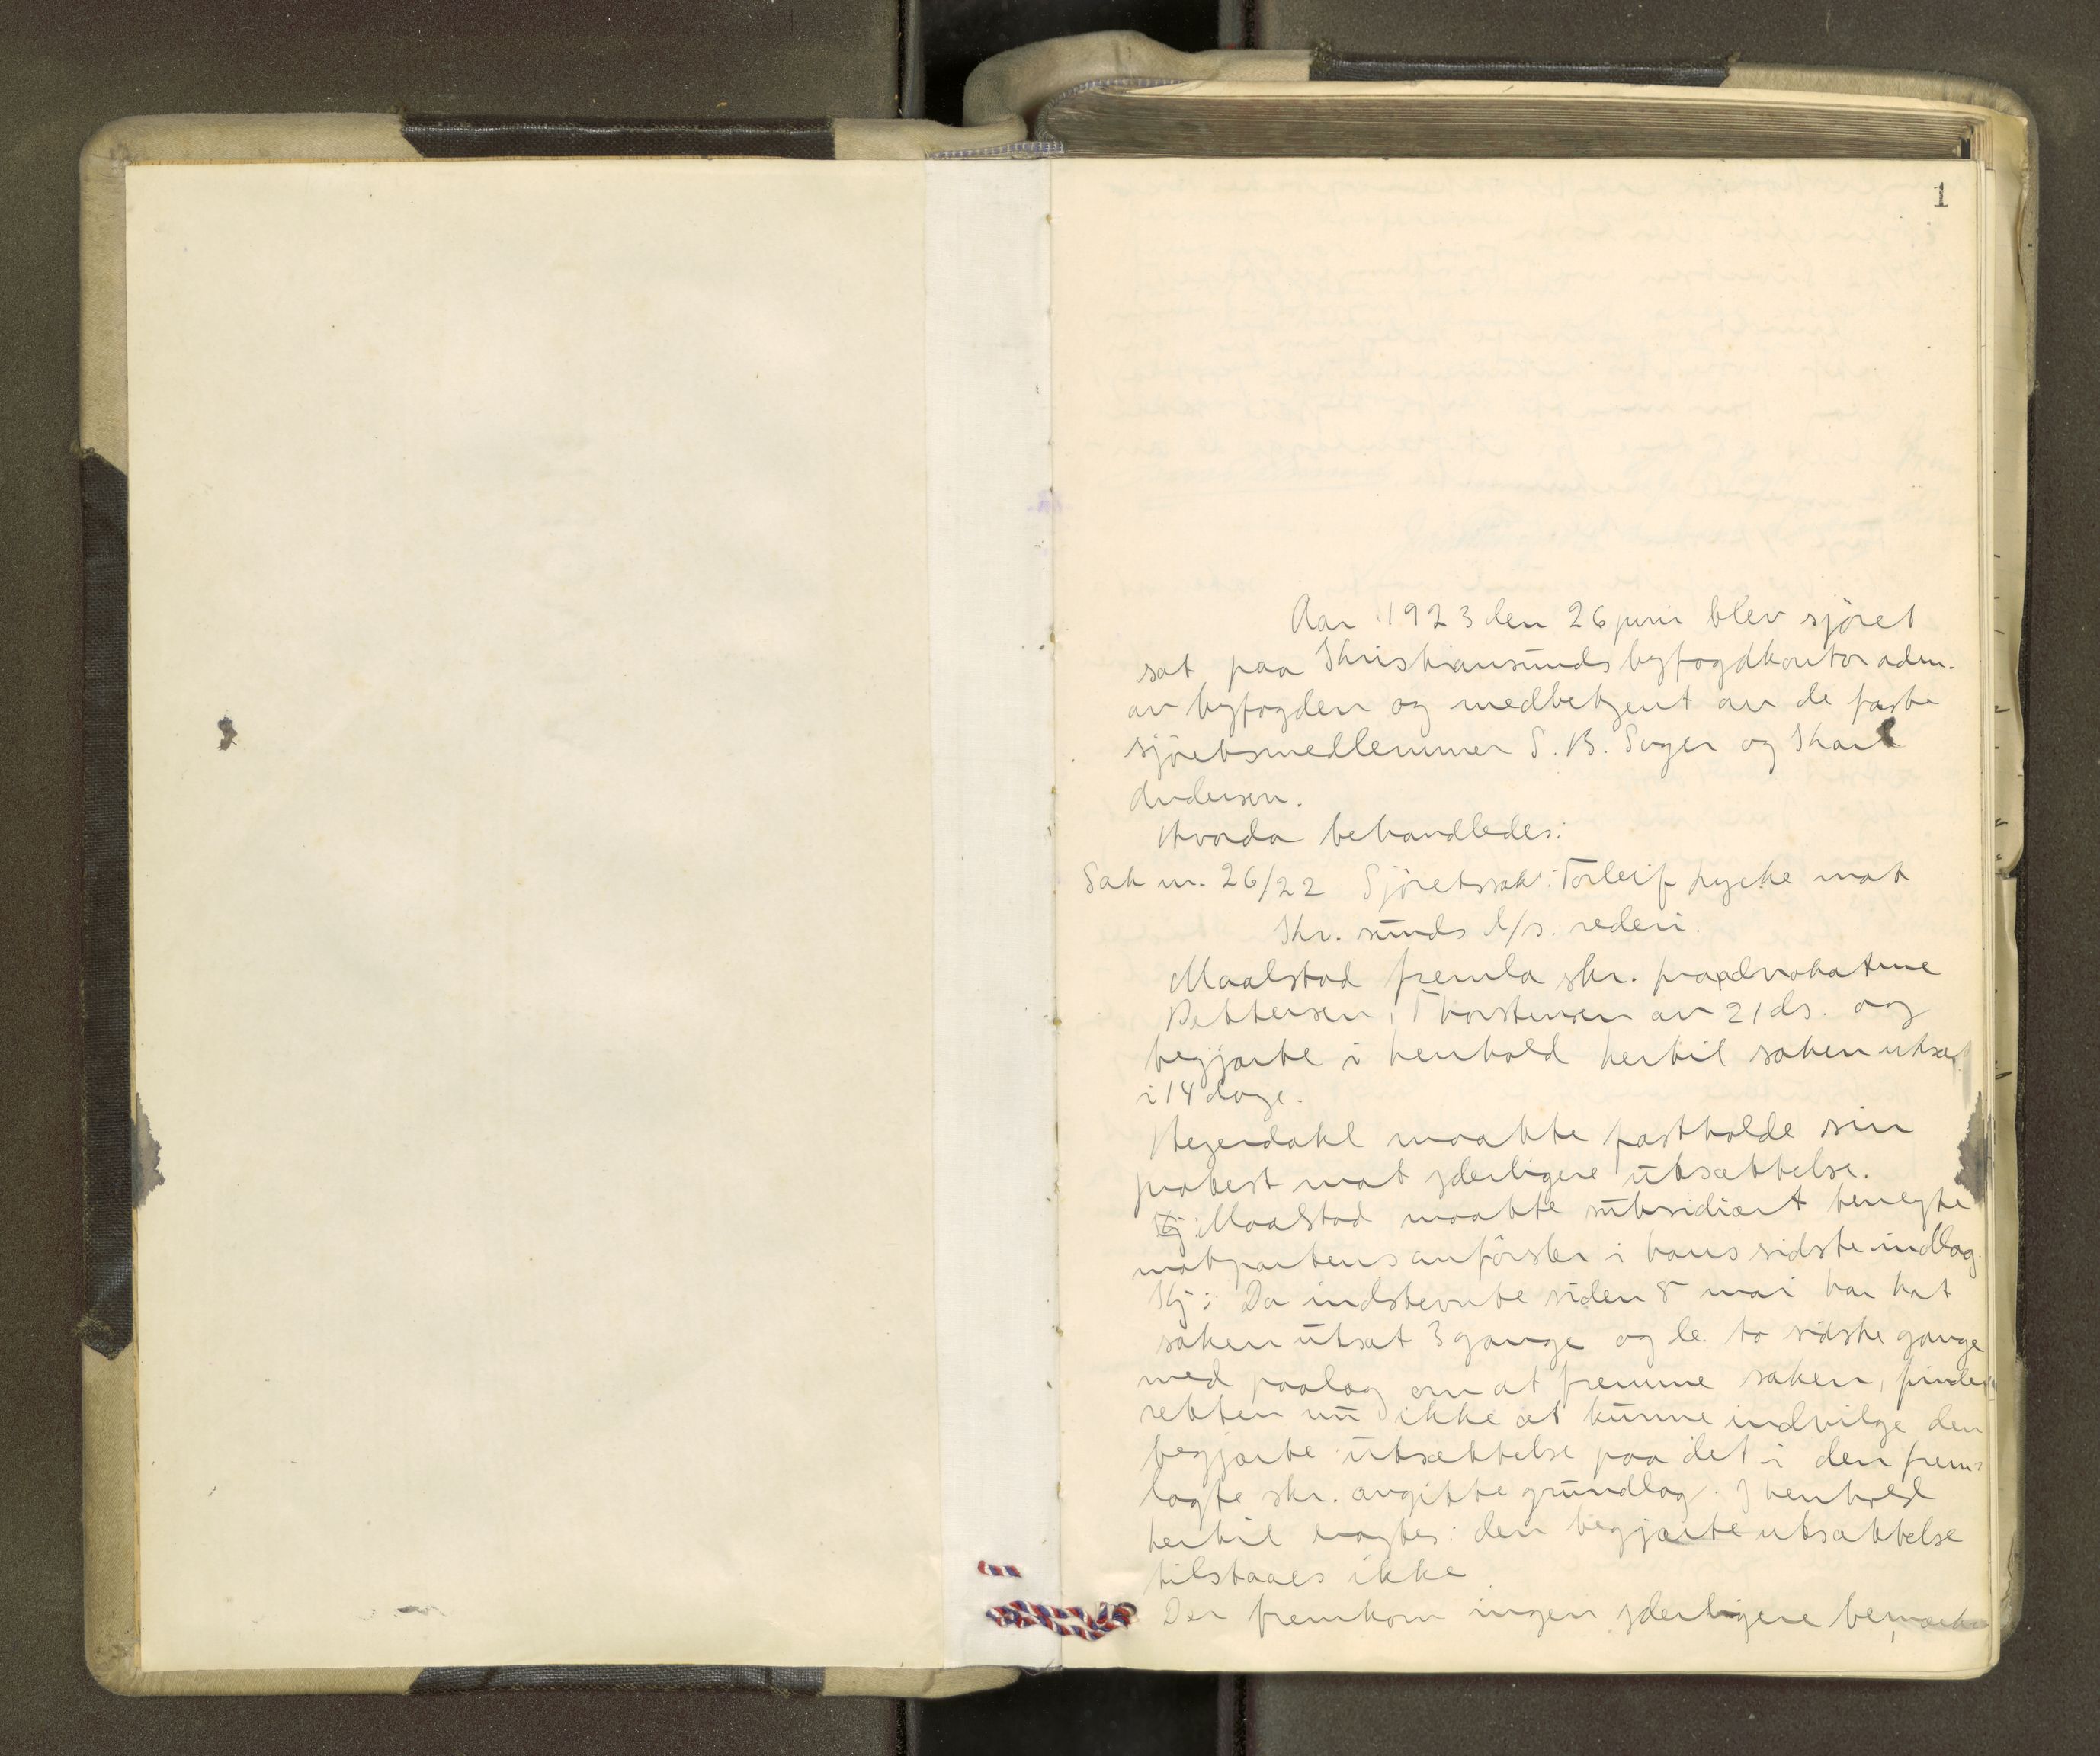 1
Aar 1923 den 26 juni blev sjøret
sat paa Kristiansunds byfogdkontor adm.
av byfogden og medbetjent av de faste
sjøretsmedlemmer S. B. Soger og Karl
Andersen.
Hvorda behandledes:
Sak nr. 26/22 Sjøretssak: Torleif mot
Kr. sunds d/s. rederi.
Maalstad fremla skr. fra advokatene
Pettersen, Thorstensen av 21 ds. og
begjærte i henhold hertil saken utsat
i 14 dage.
Hegerdahl maatte fastholde sin
protest mot yderligere utsættelse.
Maalstad maatte subsidiært benegte
motpartens anførsler i hans sidste indlæg.
Kj: Da indstevnte siden 8 mai har hat
saken utsat 3 gange og de to sidste gange
med paalæg om at fremme saken, finder
retten nu ikke at kunne indvilge den
begjærte utsættelse paa det i den frem-
lagte skr. avgitte grundlag. I henhold
hertil eragtes: den begjærte utsættelse
tilstaaes ikke
Der fremkom ingen yderligere bemærk